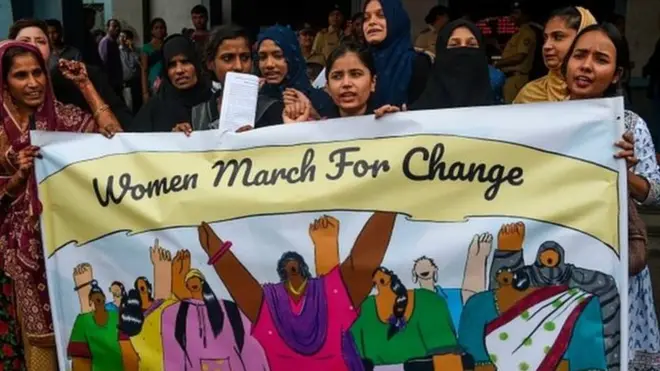 Women March For Change